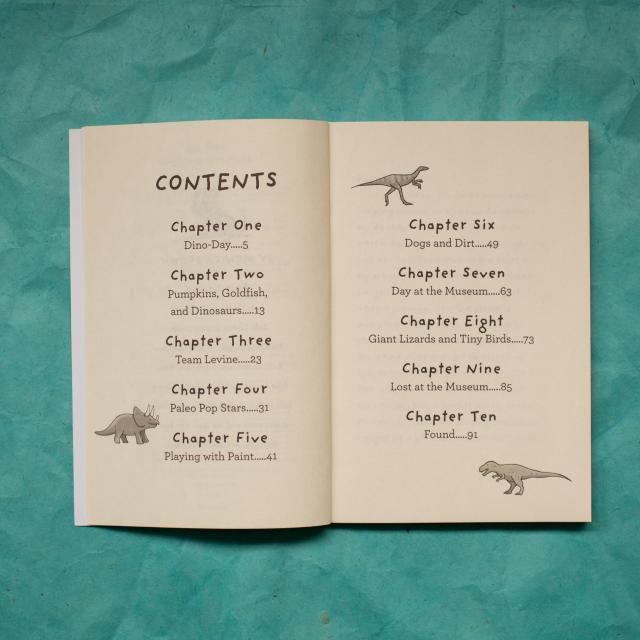 CONTENTS
Chapter One
Dino-Day.....5
Chapter Two
Pumpkins, Goldfish,
and Dinosaurs.....13
Chapter Three
Team Levine.....23
Chapter Four
Paleo Pop Stars.....31
Chapter Five
Playing with Paint.....41
Chapter Six
Dogs and Dirt.....49
Chapter Seven
Day at the Museum.....63
Chapter Eight
Giant Lizards and Tiny Birds.....73
Chapter Nine
Lost at the Museum.....85
Chapter Ten
Found.....91